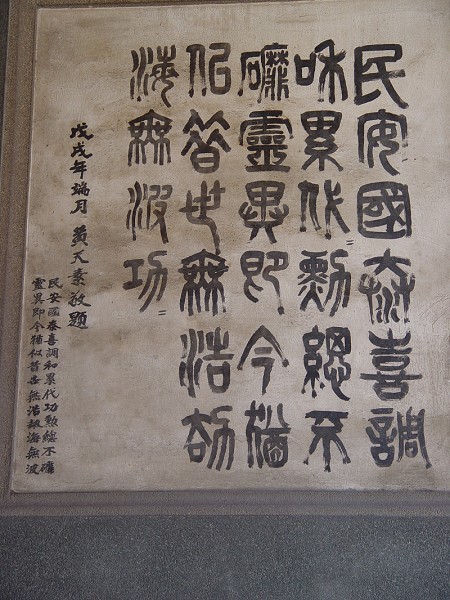 民安國泰喜調
和累代勳總不
礳靈異即今猶
似昔世無浩劫
海無波功
戊戌年端月 黃天素敬題
民安國泰喜調和累代功勳總不礳
靈異即今猶似昔世無浩劫海無波